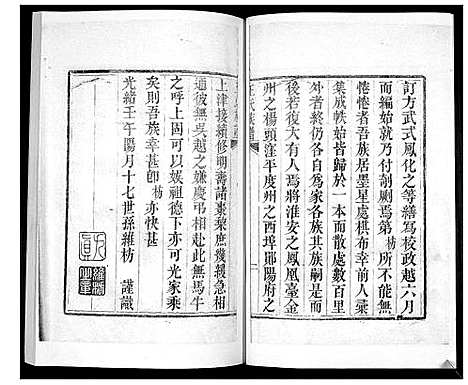 訂方武式鳳化之等繕寫校政越六月
而編始就乃付剞劂焉弟枋所不能無
惓惓者吾族居墨星處棋布幸前人彙
集成帙始皆歸於一本而散處數百里
外者終仍各自為家各族其族嗣是而
後若復大有人焉將淮安之鳳凰臺金
州之楊頭窪平度州之西埠鄖陽府之
上津接續修明壽諸棗梨庶幾緩急相
通彼無吳越之嫌慶弔相赴此無馬牛
之呼上固可以妥祖德下亦可光家乘
矣則吾族幸甚即枋亦快甚
光緒壬午陽月十七世孫維枋 謹識